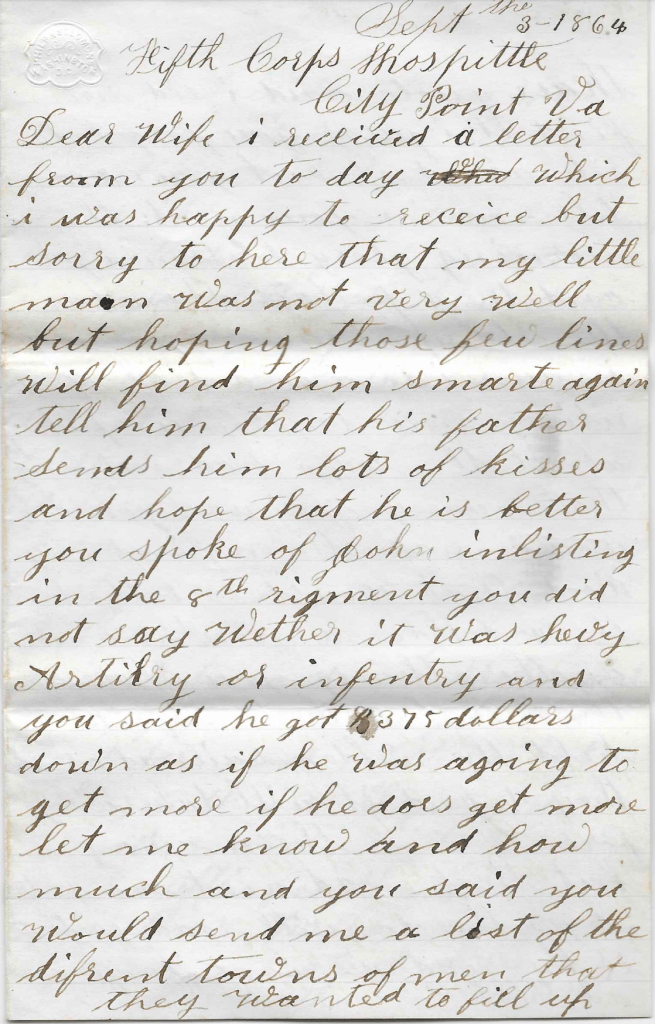 Sept the 3-1864
Fifth Corps Hospittle
City Point Va
Dear Wife i recieived a letter
froom you to day which
i was happy to receice but
sorry to here that my little
maon was not very well
but hoping those few lines
will find him smarte again
tell him that his father
sends him lots of kisses
and hope that he is better
you spoke of John inlisting
in the 8th rigment you did
not say wether it was hevy
Artilry or infentry and
you said he got $375 dollars
down as if he was agoing to
get more if he does get more
let me know and how
much and you said you
would send me a list of the
difrent towns of men that
they wanted to fill up